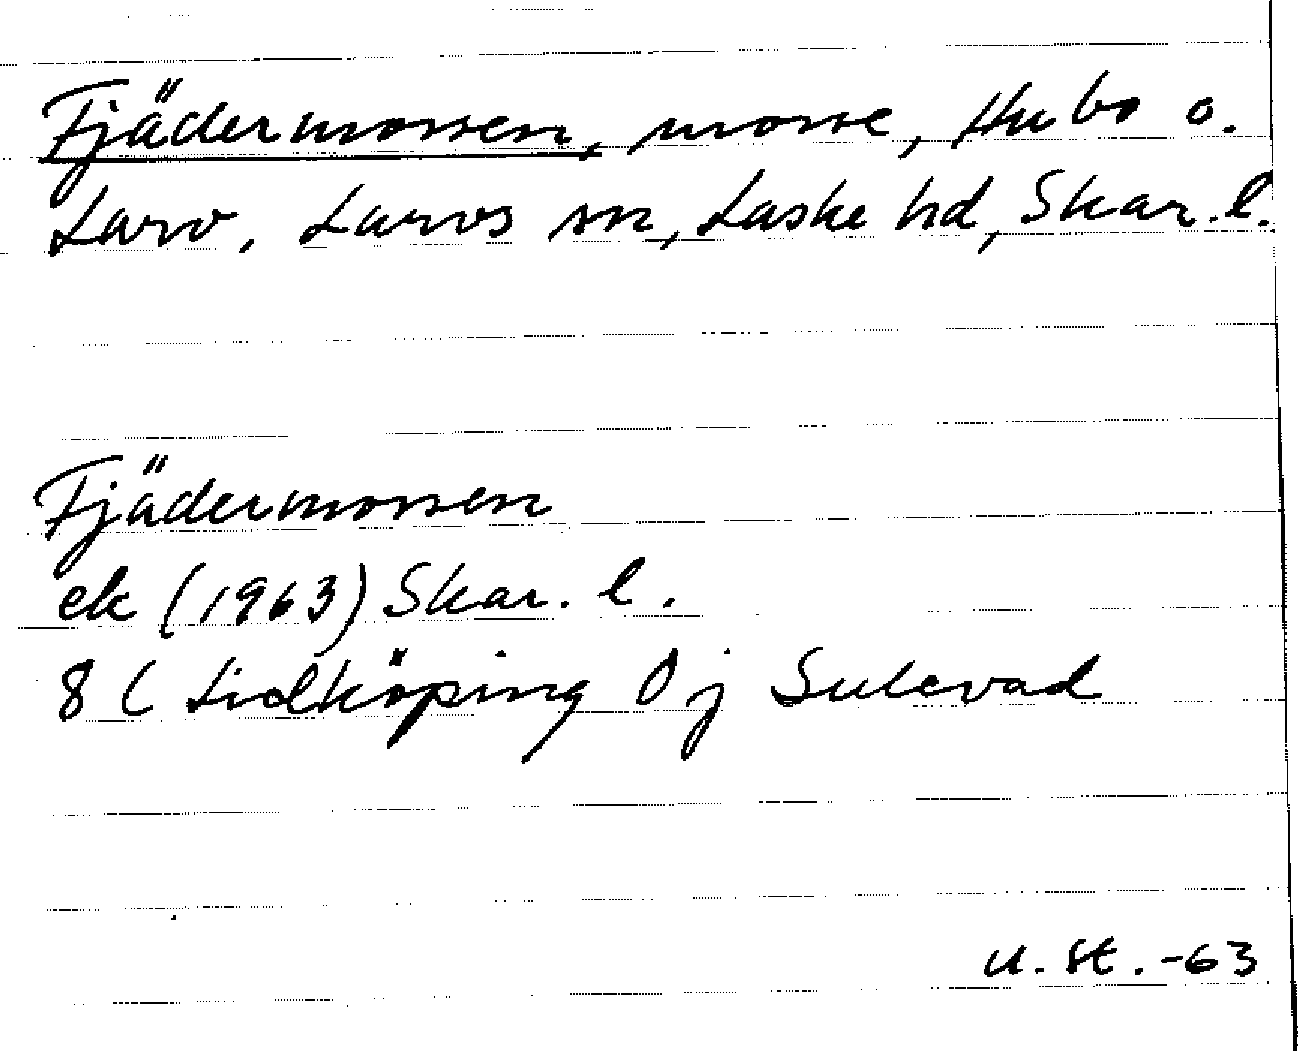 Fjädermossen, mosse, Hubo o.
Larv, Larvs sn, Laske hd, Skar. l.
Fjädermossen
ek (1963) Skar. l.
8 C Lidköping 0 j Sulevad
U. St. -63